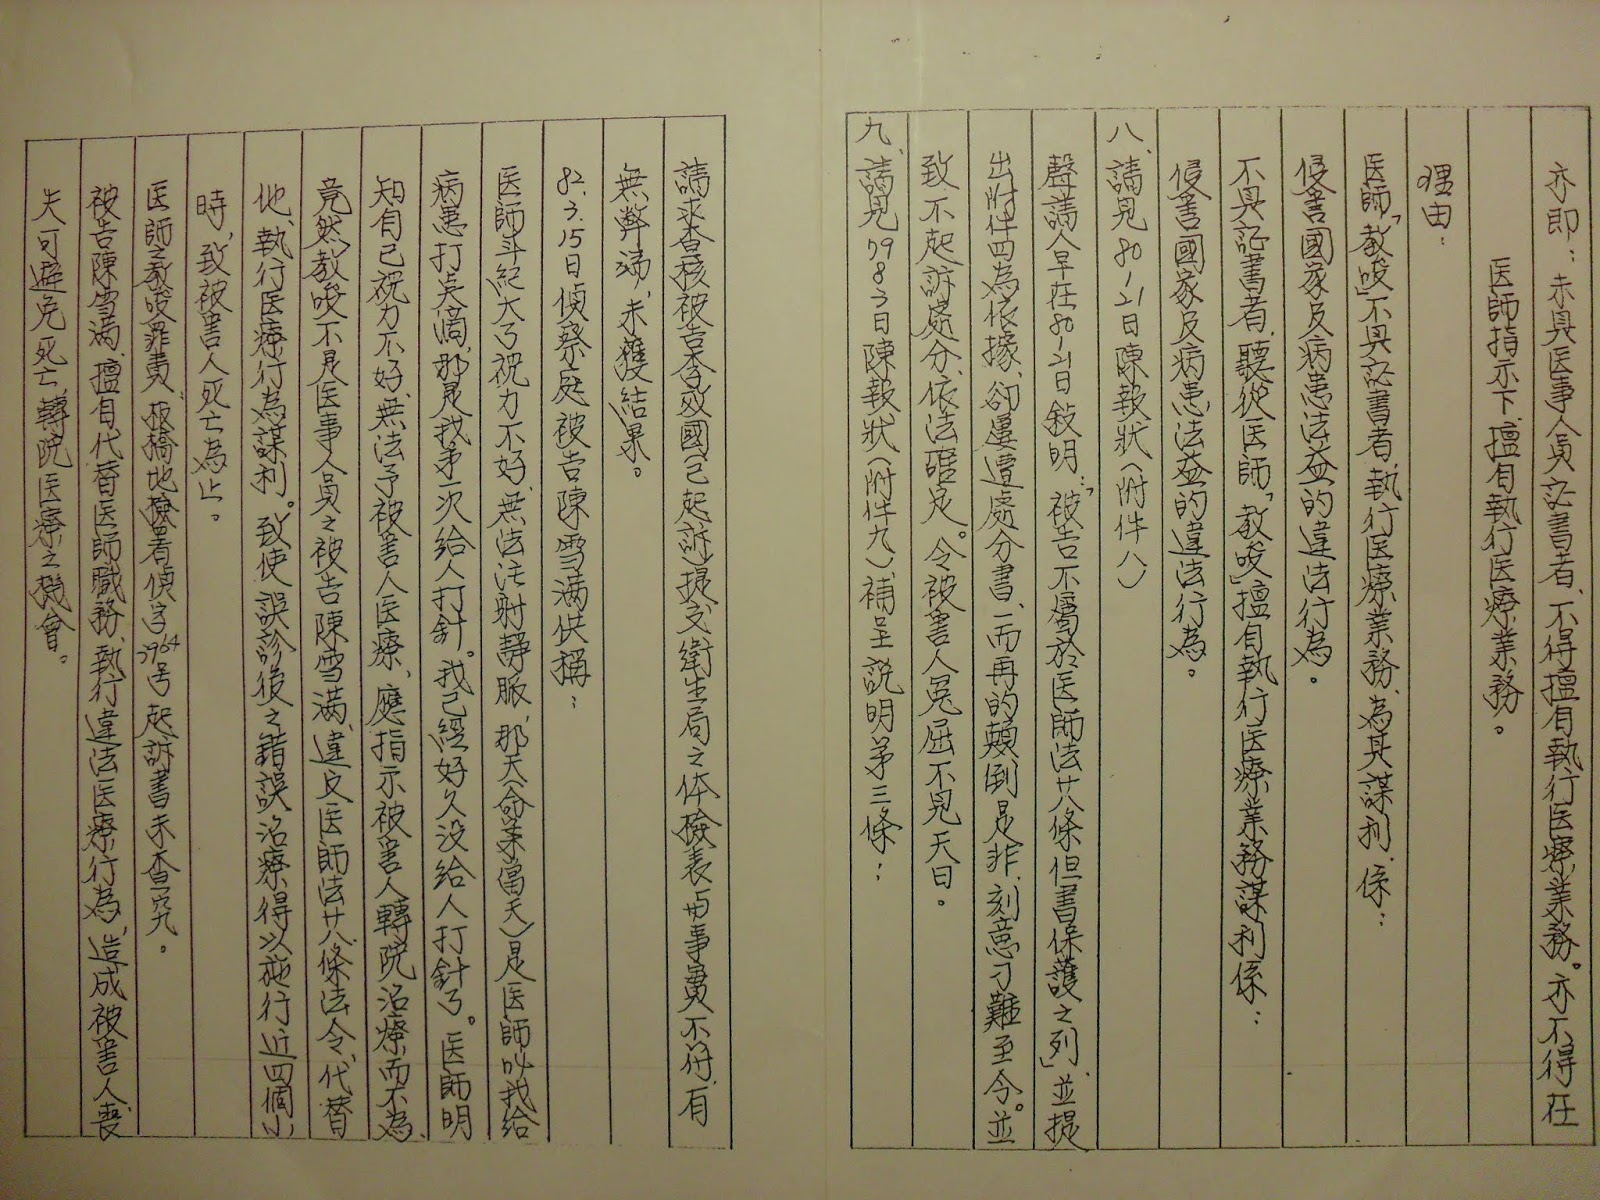 亦即：未具医事人員証書者，不得擅自執行医療業務。亦不得在
医師指示下，擅自執行医療業務。
理由：
医師「教唆」不具証書者，執行医療業務、為其謀利，係：
侵害國家及病患法益的違法行為。
不具証書者，聽從医師「教唆」擅自執行医療業務謀利係：
侵害國家及病患，法益的違法行為。
八、請見80、1、21日陳報狀（附件八）
聲請人早在80、1、21日敍明：「被告不屬於医師法廿八條但書保護之列」，並提
出附件四為依據、卻屢遭處分書，一而再的顛倒是非，刻意刁難至今。並
致不起訴處分，依法確定。令被害人冤屈不見天日。
九、請見79、8、3日陳報狀（附件九）補呈説明第三條：
請求查核被告李致國已起訴提交衛生局之体檢表与事實不符，有
無弊端，未獲結果。
82、3、15日偵察庭被告陳雪满供稱：
医師年紀大了視力不好，無法注射靜脈，那天（命案當天）是医師叫我給
病患打点滴，那是我第一次給人打針。我已經好久没給人打針了。医師明
知自己視力不好，無法予被害人医療，應指示被害人轉院治療，而不為，
竟然教唆不是医事人員之被告陳雪满，違反医師法廿八條法令，代替
他，執行医療行為謀利。致使誤診後之錯誤治療得以施行近四個小
時，致被害人死亡為止。
医師之教唆罪責，板橋地檢署偵字3964号起訴書未查究。
被告陳雪满，擅自代替医師職務，執行違法医療行為，造成被害人喪
失可避免死亡，轉院医療之機會。